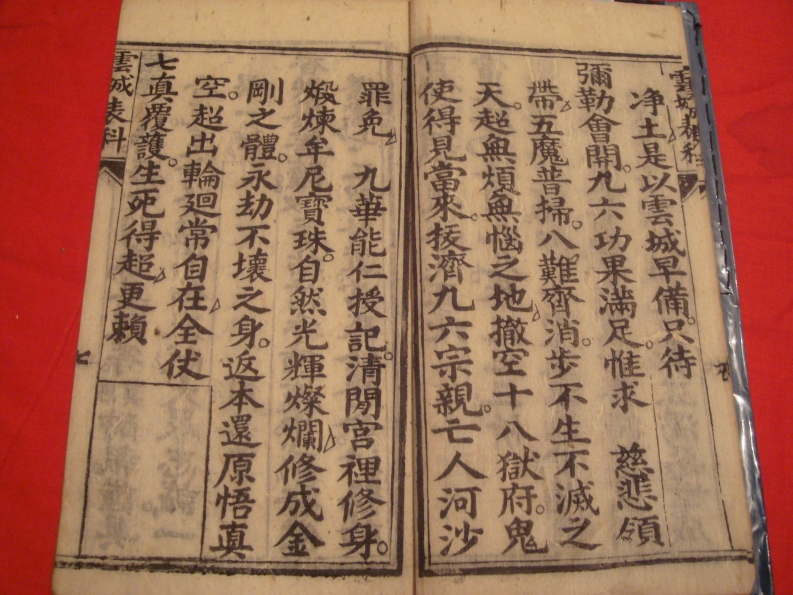 雲城表科
净土是以雲城早備。只待
彌勒會開。九六功果滿足。惟求　慈悲領
帶。五魔普掃。八難齊消。步不生不滅之
天。超無煩無惱之地。撤空十八獄府。鬼
使得見當來。拔濟九六宗親。亡人河沙
罪免　九華能仁授記。清閒宮裡修身。
煅煉牟尼寶珠。自然光輝燦爛。修成金
剛之體。永劫不壞之身。返本還原悟真
空。超出輪廻常自在。全伏
七真覆護。生死得超。更賴
雲城表科
七